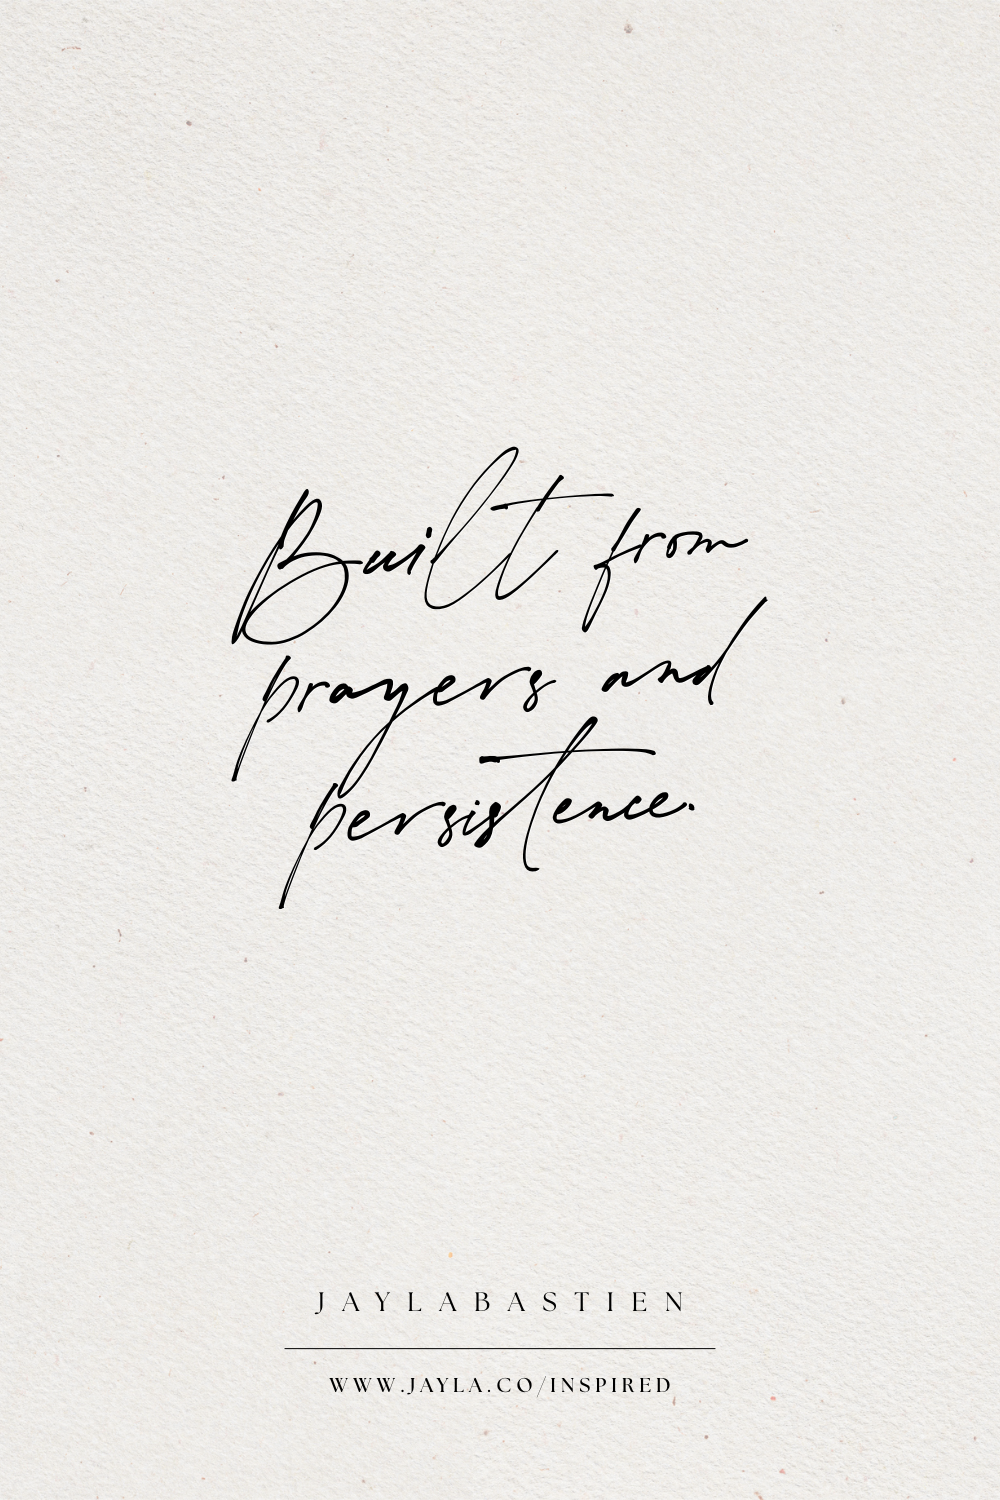 Built from
prayers and
persistence.
JAYLABASTIEN
WWW.JAYLA.CO/INSPIRED